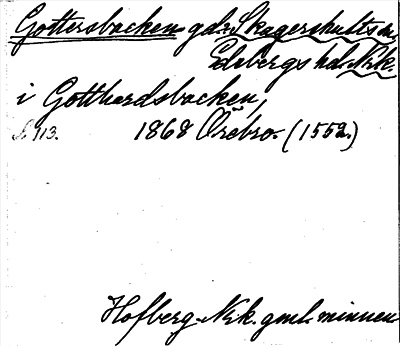 Gottersbacken gd. Skagershults sn.
Edsbergs hd. Nrk.
i Gotthardsbacken,
S. 113. 1868 Örebro. (1552.)
Hofberg. Nrk. gml. minnen